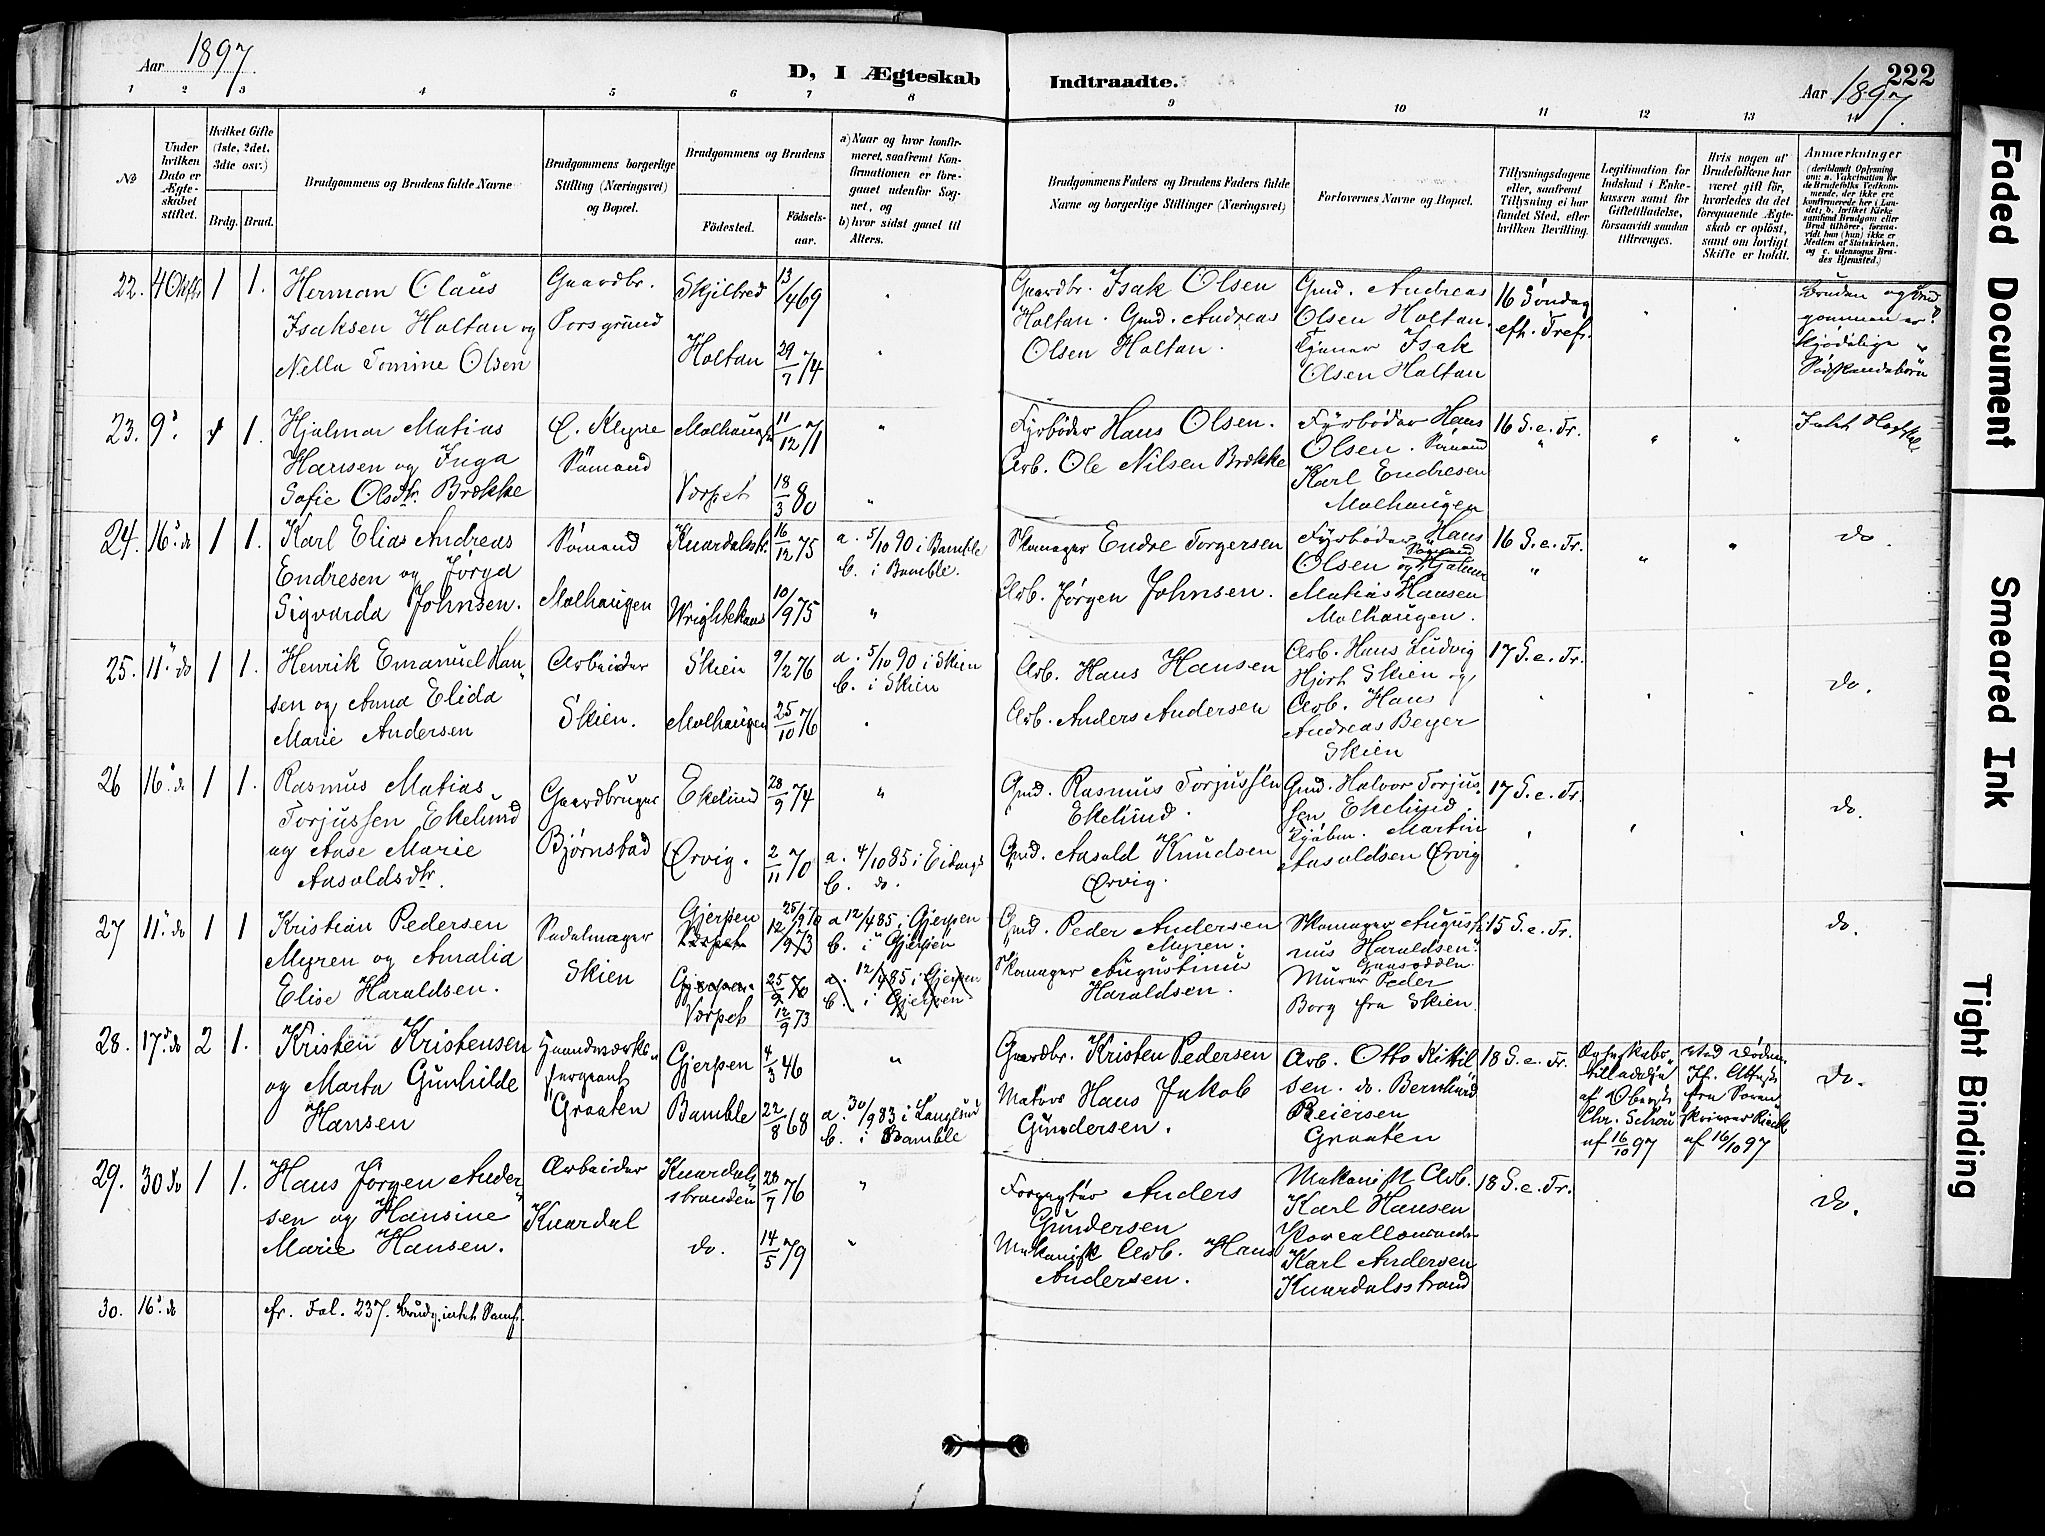 Aar 1897.
D, I Ægteskab
Indtraadte.
222
Aar 1897.
1 2 3 4 5 6 7 8 9 10 11 12 13 14
No
Under hvilken Dato er Ægteskabet stiftet.
Hvilket Gifte (1ste, 2det, 3die osv.)
Brdg. Brud.
Brudgommens og Brudens fulde Navne
Brudgommens borgerlige Stilling (Næringsvei) og Bopæl.
Brudgommens og Brudens
Fødested.
Fødselsaar.
a) Naar og hvor konfirmeret, saafremt Konfirmationen er foregaaet udenfor Sognet, og
b) hvor sidst gaaet til Alters.
Brudgommens Faders og Brudens Faders fulde Navne og borgerlige Stillinger (Næringsvei)
Forlovernes Navne og Bopæl.
Tillysningsdagene eller, saafremt Tillysning ei har fundet Sted, efter hvilken Bevilling.
Legitimation for Indskud i Enkekassen samt for Giftetilladelse, forsaavidt saadan tiltrænges.
Hvis nogen af Brudefolkene har været gift før, hvorledes da det foregaaende Ægteskab er opløst, samt om lovligt Skifte er holdt.
Anmærkninger
(deriblandt Oplysning om: a. Vakcination for de Brudefolks Vedkommende, der ikke ere konfirmerede her i Landet; b. hvilket Kirkesamfund Brudgom eller Brud tilhører, forsaavidt han (hun) ikke er Medlem af Statskirken, og c. udensogns Brudes Hjemsted.)
22. 4 Oktbr 1 1.
Herman Olaus
Isaksen Holtan og
Nella Tomine Olsen
Gaardbr.
Porsgrund
Skjilbred 13/4 69
Holtan 29/7 74
Gaardbr. Isak Olsen
Holtan. Gmd. Andreas
Olsen Holtan.
Gmd. Andreas
Olsen Holtan.
Tjener Isak
Olsen Holtan
16 Søndag
eft. Tref.
Bruden og Brud
gommen er
kjødelige
Södskendebörn
23. 9. 1 1.
Hjalmar Matias
Hansen og Inga
Sofie Olsdtr. Brække
Sømand
Mælhaugen 11/12 71
Vorpet 18/3 80
Fyrbøder Hans Olsen.
Arb. Ole Nilsen Brække
Fyrbøder Hans
Olsen. Sømand
Karl Endresen
Mælhaugen
16 S. e. Tr.
24. 16. do 1 1.
Karl Elias Andreas
Endresen og Jørga
Sigvarda Johnsen.
Sømand
Mælhaugen
Knardalsstr. 16/12 75
Wrightehaus 10/9 75
a. 5/10 90 i Bamble
b. i Bamble.
Skomager Endre Torgersen
Arb. Jørgen Johnsen.
Fyrbøder Hans
Sømand
Olsen og Hjalmar
Matias Hansen
Mælhaugen.
16 S. e. Tr.
do.
25. 11. do 1 1.
Henrik Emanuel Han
sen og Anna Elida
Marie Andersen
Arbeider
Skien.
Skien 9/2 76
Mælhaugen 25/10 76
a. 5/10 90 i Skien
b. i Skien
Arb. Hans Hansen
Arb. Anders Andersen
Arb. Hans Ludvig
Hjort Skien og
Arb. Hans
Andreas Beyer
Skien
17 S. e. Tr.
do.
26 16. do 1 1.
Rasmus Matias
Torjussen Ekelund
og Anne Marie
Aasoldsdtr.
Gaardbruger
Bjørnstad
Ekelund 28/9 74
Ørvig. 2/11 70
a. 4/10 85 i Eidanger
b. do.
Gmd. Rasmus Torjussen
Ekelund.
Gmd. Aasold Knudsen
Ørvig.
Gmd. Halvor Torjus
sen Ekelund.
Kjøbm. Martin
Aasoldsen Ørvig
17 S. e. Tr.
do.
27 11. do 1 1
Kristian Pedersen
Myren og Amalia
Elise Haraldsen.
Sadelmager
Skien
Gjerpen 25/9 70
Vorpet 12/9 73
Gjerpen 25/9 70
Vorpet 12/9 73
a 12/4 85 i Gjerpen
b. i Gjerpen
a. 12/4 85 i Gjerpen
b. i Gjerpen
Gmd. Peder Andersen
Myren.
Skomager Augustinus
Haraldsen.
Skomager Augusti
nus Haraldsen
Gaasodden
Murer Peder
Borg fra Skien
15 S. e. Tr.
do.
28. 17. do 2 1.
Kristen Kristensen
og Marta Gunhilde
Hansen
Haandværks
sergeant
Graaten
Gjerpen 4/3 46
Bamble 22/8 68
a. 30/9 83 i Langesund
b. i Bamble
Gaardbr. Kristen Pedersen
Matros Hans Jakob
Gundersen.
Arb. Otto Kittil
sen. do. Bernhard
Reiersen
Graaten
18 S. e. Tr.
Ægteskabs
tilladelse
af Oberst
Chr. Schou
af 16/10 97
ved Døden.
If. Attest
fra Soren
skriver
af 16/10 97
do.
29. 30 do 1 1.
Hans Jørgen Ander
sen og Hansine
Marie Hansen.
Arbeider
Knardal
Knardals
stranden 28/7 76
do. 14/5 79
Forpagter Anders
Gundersen
Mekanisk Arb. Hans
Andersen.
Mekanisk Arb.
Karl Hansen
Karl Andersen
Knardalsstrand
18 S. e. Tr.
do.
30. 16. do
fr. Fol. 237.
Faded Document
Smeared Ink
Tight Binding